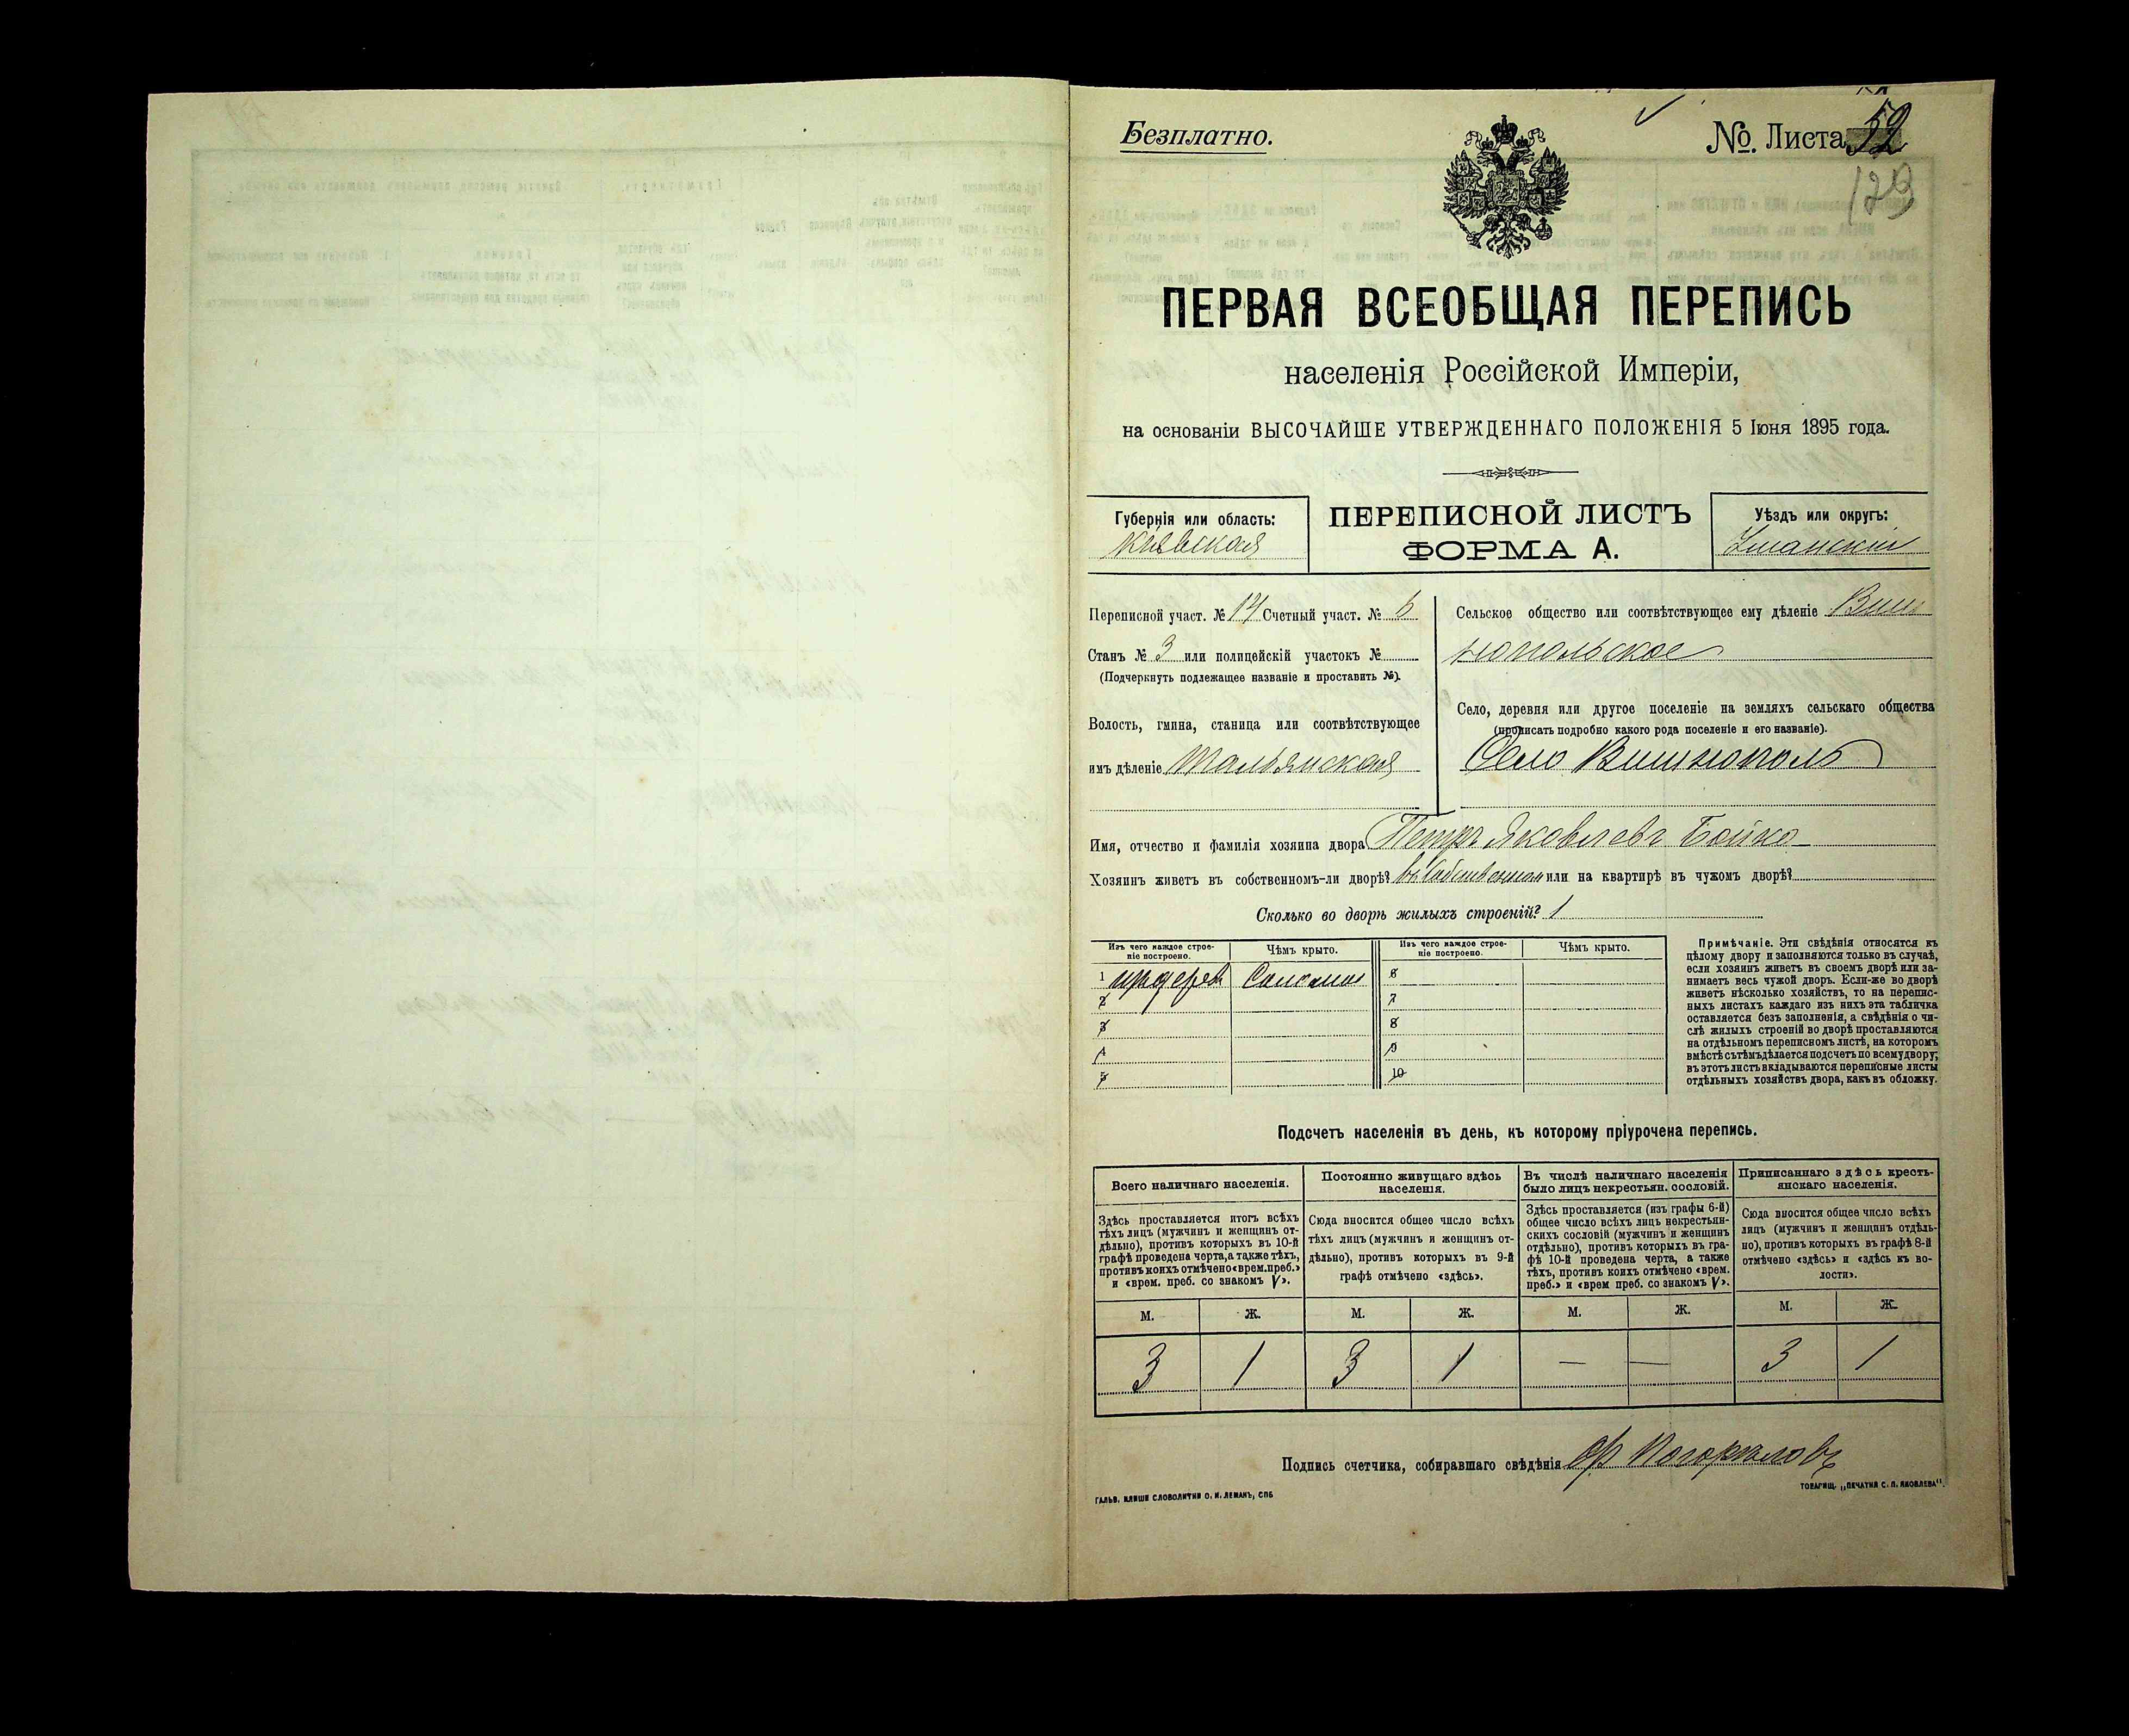 Безплатно.
No. Листа 52
129
ПЕРВАЯ ВСЕОБЩАЯ ПЕРЕПИСЬ
населенія Россійской Имперіи,
на основаніи ВЫСОЧАЙШЕ УТВЕРЖДЕННАГО ПОЛОЖЕНІЯ 5 Іюня 1895 года.
Губернія или область:
Кіевская
ПЕРЕПИСНОЙ ЛИСТЪ
ФОРМА А.
Уѣздъ или округъ:
Уманскій
Переписной участ. № 14 Счетный участ. № 6
Станъ № 3 или полицейскій участокъ №
(Подчеркнуть подлежащее названіе и проставить №).
Волость, гмина, станица или соотвѣтствующее
имъ дѣленіе Тальянская
Сельское общество или соотвѣтствующее ему дѣленіе Виш
нопольское
Село, деревня или другое поселеніе на земляхъ сельскаго общества
(прописать подробно какого рода поселеніе и его названіе).
Село Вишнополь
Имя, отчество и фамилія хозяина двора Петръ Яковлевъ Бойко
Хозяинъ живетъ въ собственномъ-ли дворѣ? въ собственном или на квартирѣ въ чужомъ дворѣ?
Сколько во дворѣ жилыхъ строеній? 1
Изъ чего каждое строе-
ніе построено.
Чѣмъ крыто.
Изъ чего каждое строе-
ніе построено.
Чѣмъ крыто.
1 Соломы 6
2 7
3 8
4 9
5 10
Примѣчаніе. Эти свѣдѣнія относятся къ
цѣлому двору и заполняются только въ случаѣ,
если хозяинъ живетъ въ своемъ дворѣ или за-
нимаетъ весь чужой дворъ. Если-же во дворѣ
живетъ нѣсколько хозяйствъ, то на перепис-
ныхъ листахъ каждаго изъ нихъ эта табличка
оставляется безъ заполненія, а свѣдѣнія о чи-
слѣ жилыхъ строеній во дворѣ проставляются
на отдѣльномъ переписномъ листѣ, на которомъ
вмѣстѣ съ тѣмъ дѣлается подсчетъ по всему двору;
въ этотъ листъ вкладываются переписные листы
отдѣльныхъ хозяйствъ двора, какъ въ обложку.
Подсчетъ населенія въ день, къ которому пріурочена перепись.
Всего наличнаго населенія.
Здѣсь проставляется итогъ всѣхъ
тѣхъ лицъ (мужчинъ и женщинъ от-
дѣльно), противъ которыхъ въ 10-й
графѣ проведена черта, а также тѣхъ,
противъ коихъ отмѣчено «врем. преб.»
и «врем. преб. со знакомъ V».
Постоянно живущаго здѣсь
населенія.
Сюда вносится общее число всѣхъ
тѣхъ лицъ (мужчинъ и женщинъ от-
дѣльно), противъ которыхъ въ 9-й
графѣ отмѣчено «здѣсь».
Въ числѣ наличнаго населенія
было лицъ некрестьян. сословій.
Здѣсь проставляется (изъ графы 6-й)
общее число всѣхъ лицъ некрестьян-
скихъ сословій (мужчинъ и женщинъ
отдѣльно), противъ которыхъ въ гра-
фѣ 10-й проведена черта, а также
тѣхъ, противъ коихъ отмѣчено «врем.
преб.» и «врем преб. со знакомъ V».
Приписаннаго здѣсь кресть-
янскаго населенія.
Сюда вносится общее число всѣхъ
лицъ (мужчинъ и женщинъ отдѣль-
но), противъ которыхъ въ графѣ 8-й
отмѣчено «здѣсь» и «здѣсь къ во-
лости».
М. Ж. М. Ж. М. Ж. М. Ж.
3 1 3 1 — — 3 1
Подпись счетчика, собиравшаго свѣдѣнія Погорѣловъ
ГАЛЬВ. КЛИШЕ СЛОВОЛИТНИ О. И. ЛЕМАНЪ, СПБ
ТОВАРИЩ. „ПЕЧАТНЯ С. П. ЯКОВЛЕВА".